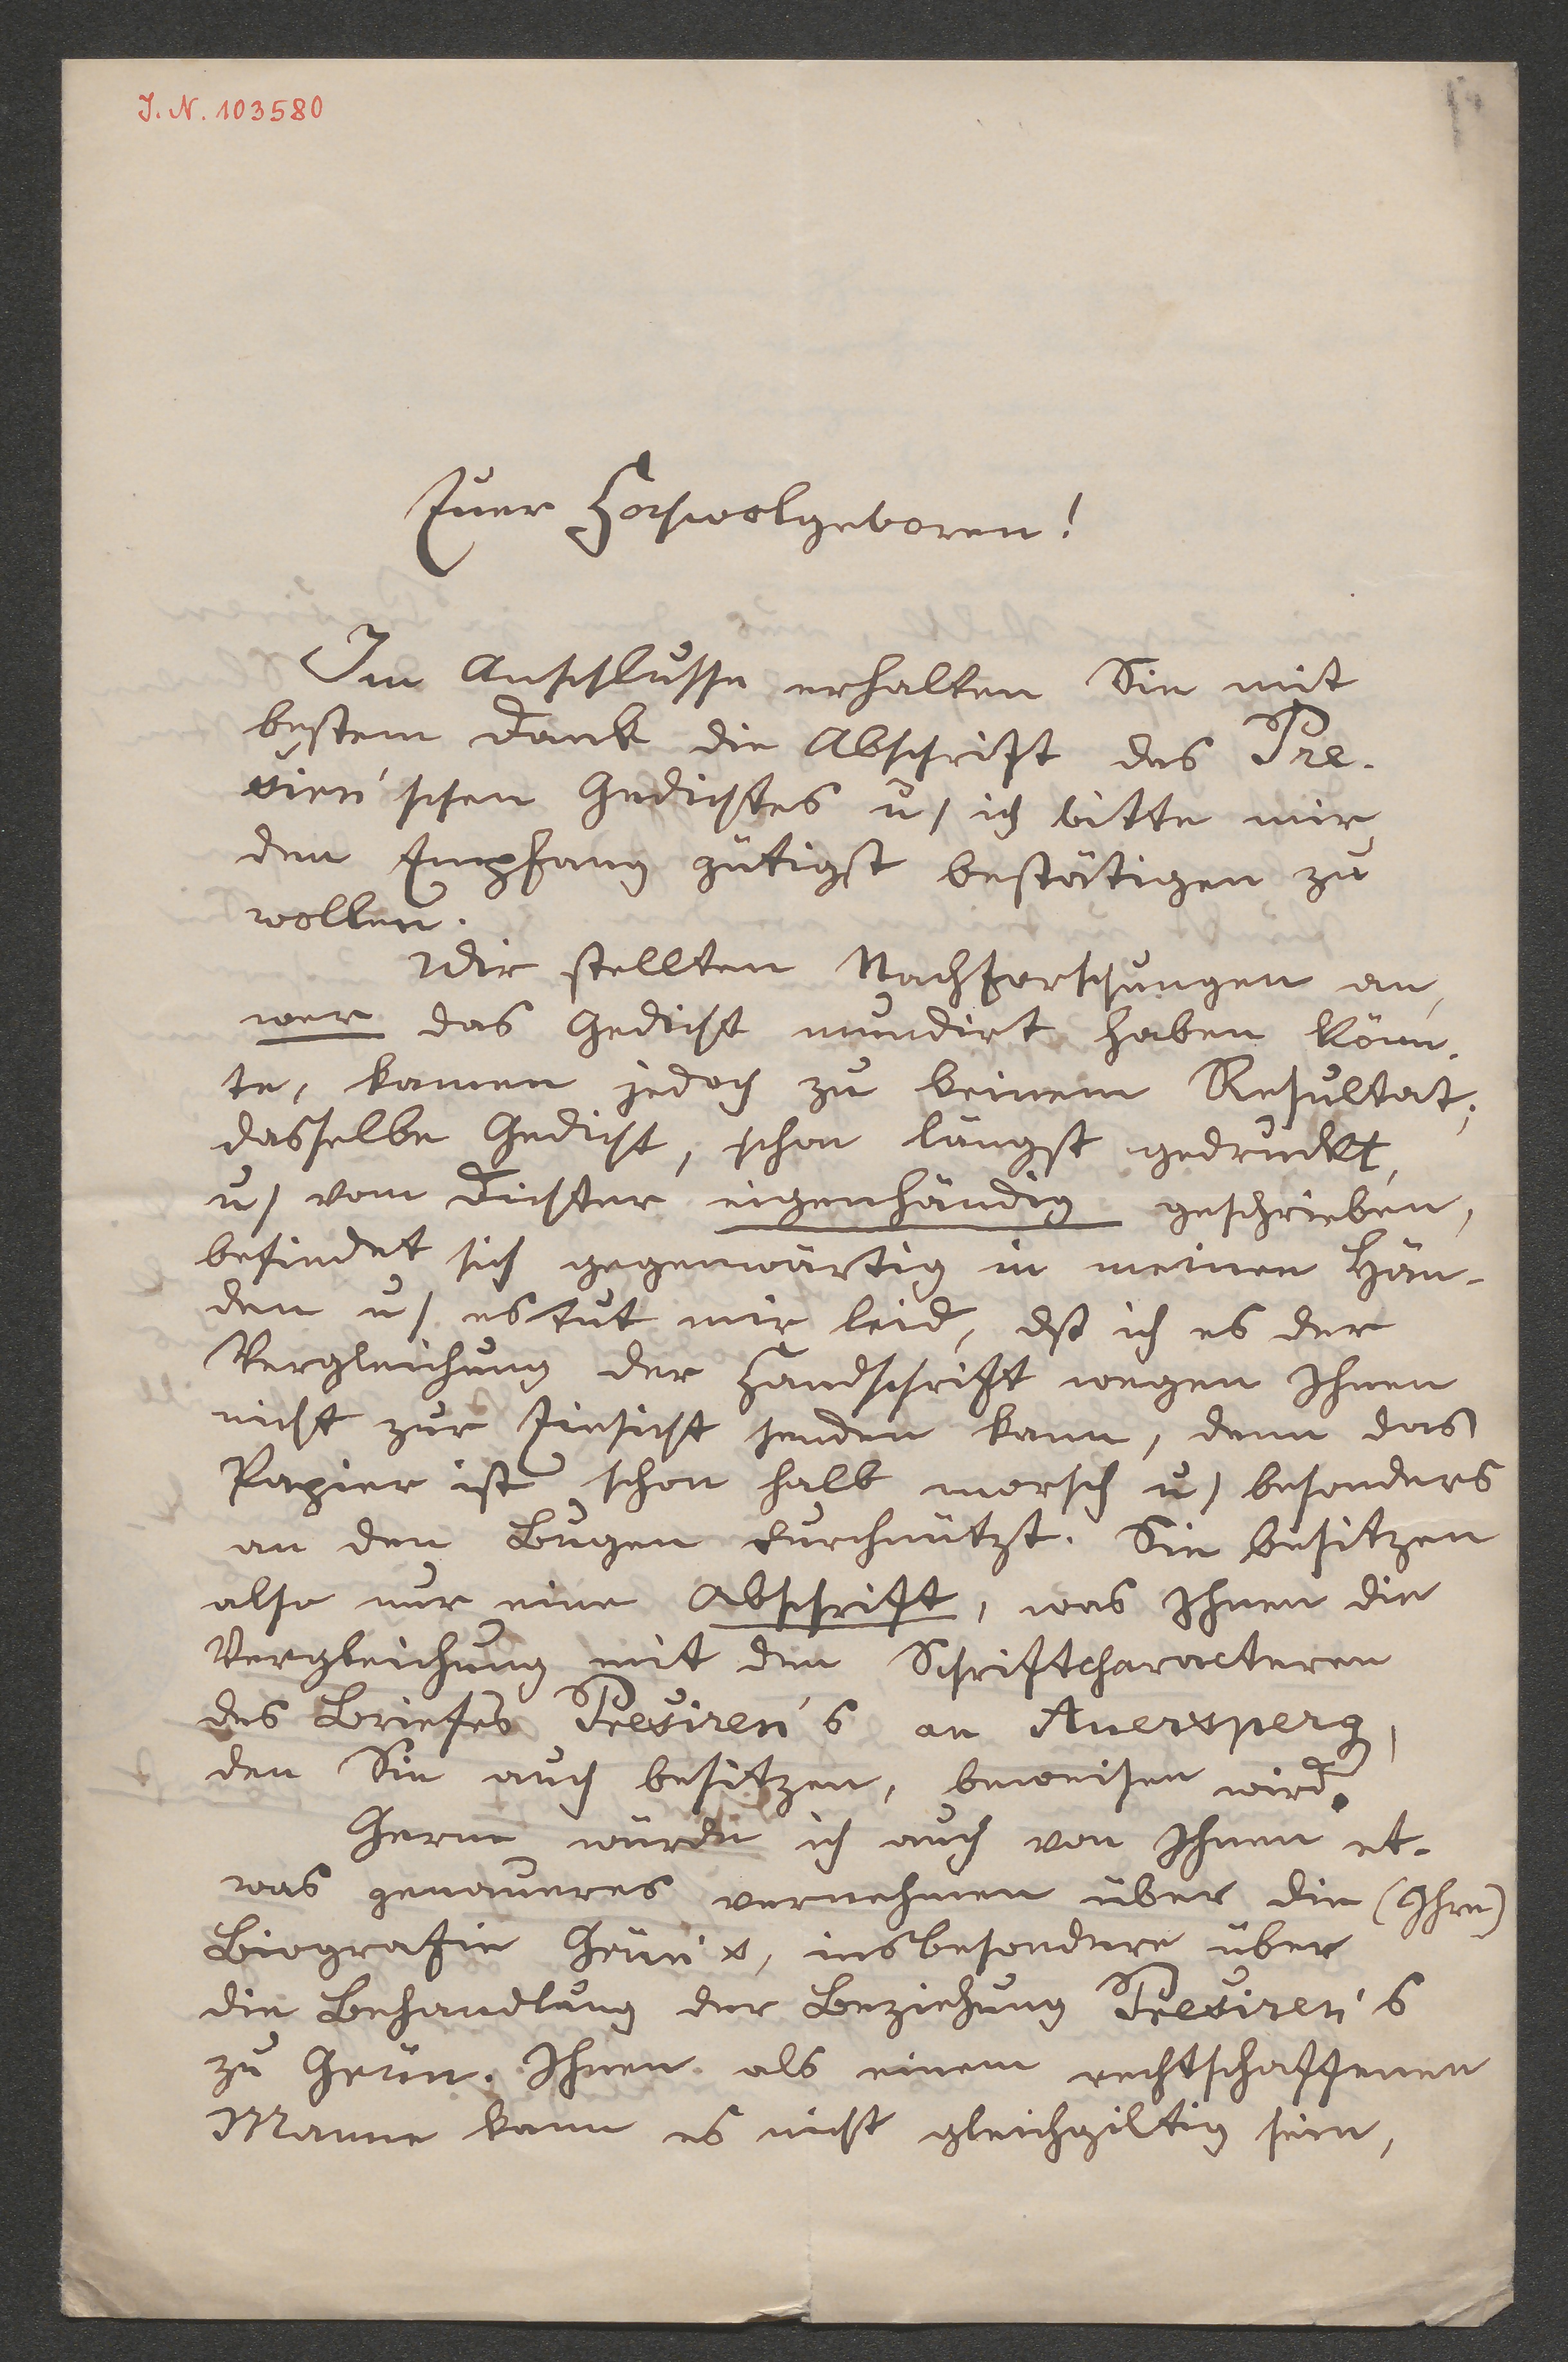 J. N. 103580
Euer Hochwolgeboren!
Im Anschlusse erhalten Sie mit
bestem Dank die Abschrift des Pre-
širen'schen Gedichtes u/ ich bitte mir
den Empfang gütigst bestätigen zu
wollen.
Wir stellten Nachforschungen an,
wer das Gedicht mundirt haben könn-
te, kamen jedoch zu keinem Resultat;
dasselbe Gedicht, schon längst gedruckt,
u/ vom Dichter eigenhändig geschrieben,
befindet sich gegenwärtig in meinen Hän-
den u/ es tut mir leid, dß ich es der
Vergleichung der Handschrift wegen Ihnen
nicht zur Einsicht senden kann, denn das
Papier ist schon halb morsch u/ besonders
an den Bugen durchnützt. Sie besitzen
also nur eine Abschrift, was Ihnen die
Vergleichung mit den Schriftcharacteren
des Briefes Preširen's an Auersperg,
den Sie auch besitzen, beweisen wird.
Gerne würde ich auch von Ihnen et-
was genaueres vernehmen über die (Ihre)
Biografie Grün's, insbesondere über
die Behandlung der Beziehung Preširen's
zu Grün. Ihnen als einem rechtschaffenen
Manne kann es nicht gleichgiltig sein,